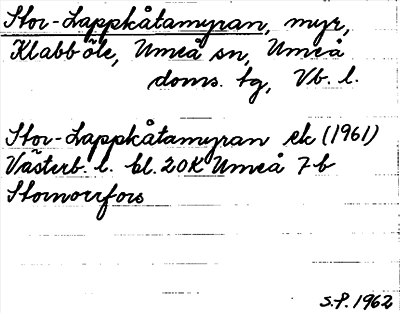 Stor-Lappkåtamyran, myr,
Klabböle, Umeå sn, Umeå
doms. tg, Vb. l.
Stor-Lappkåtamyran ek (1961)
Västerb. l. bl. 20K Umeå 7b
Stornorrfors
S.P. 1962